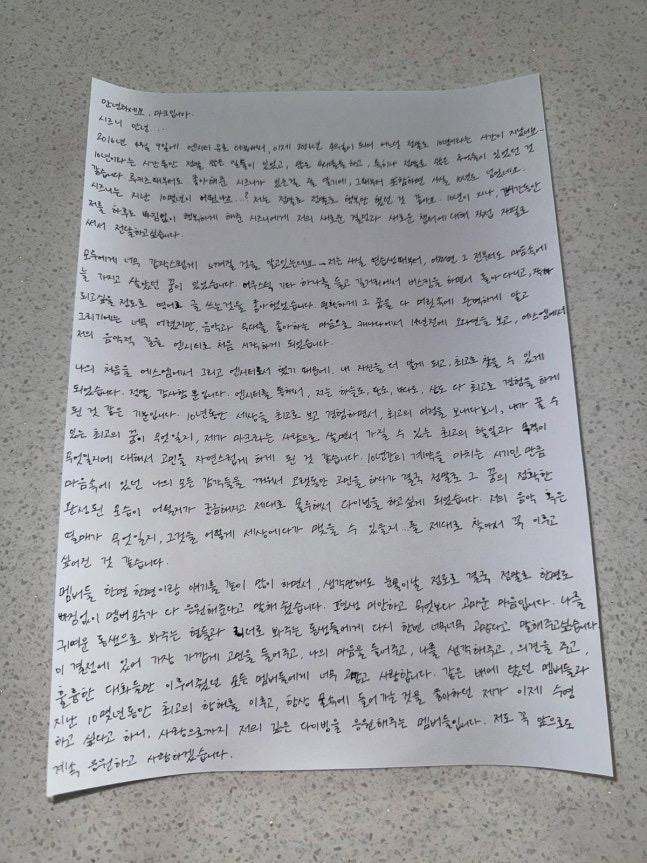 안녕하세요, 마크입니다.
시즈니 안녕...
2016년 4월 9일에 엔시티 유로 데뷔해서, 이제 2026년 4월이 되어 어느덧 정말로 10년이라는 시간이 지났네요..
10년이라는 시간동안 정말 많은 일들이 있었고, 많은 무대들을 하고, 특히나 정말로 많은 추억들이 있었던 것
같습니다. 루키즈때부터도 좋아해준 시즈니가 있는걸 잘 알기에, 그때부터 포함하면 사실 10년도 넘었네요.
시즈니는 지난 10몇년이 어땠나요...? 저는 정말로 정말로 행복만 했던 것 같아요. 10년이 지나, 그 기간동안
저를 하루도 빠짐없이 행복하게 해준 시즈니에게 저의 새로운 결정과 새로운 챕터에 대해 직접 자필로
써서 전달하고싶습니다.
모두에게 너무 갑작스럽게 느껴질 것을 알고있는데요.. 저는 사실 연습생때부터, 어쩌면 그 전부터도 마음속에
늘 가지고 살았던 꿈이 있었습니다. 어쿠스틱 기타 하나를 들고 길거리에서 버스킹을 하면서 돌아다니고, 작가
되고싶을 정도로 영어로 글 쓰는것을 좋아했었습니다. 명확하게 그 꿈을 다 머릿속에 완벽하게 알고
그리기에는 너무 어렸지만 음악과 무대를 좋아하는 마음으로 캐나다에서 14년전에 오디션을 보고, 에스엠에서
저의 음악적 길을 엔시티로 처음 시작하게 되었습니다.
나의 처음을 에스엠에서 그리고 엔시티로서 했기 때문에, 내 자신을 더 알게 되고, 최고로 찾을 수 있게
되었습니다. 정말 감사할 뿐입니다. 엔시티를 통해서, 저는 하늘도, 땅도, 바다도, 산도 다 최고로 경험을 하게
된 것 같은 기분입니다. 10년동안 세상을 최고로 보고 경험하면서, 최고의 여정을 보내다보니, 내가 꿀 수
있는 최고의 꿈이 무엇일지, 제가 마크라는 사람으로 살면서 가질 수 있는 최고의 할일과 목적이
무엇일지에 대해서 고민을 자연스럽게 하게 된 것 같습니다. 10년간의 계약을 마치는 시기인 만큼
마음속에 있던 나의 모든 감각들을 깨워서 오랫동안 고민을 하다가 결국 정말로 그 꿈의 정확한
완성된 모습이 어떨지가 궁금해지고 제대로 몰두해서 다이빙을 하고싶게 되었습니다. 저의 음악 혹은
열매가 무엇일지, 그것을 어떻게 세상에다가 맺을 수 있을지..를 제대로 찾아서 꼭 이루고
싶어진 것 같습니다.
멤버들 한명 한명이랑 얘기를 같이 많이 하면서, 생각만해도 눈물이날 정도로 결국 정말로 한명도
빠짐없이 멤버 모두가 다 응원해준다고 말해 줬습니다. 평생 미안하고 무엇보다 고마운 마음입니다. 나를
귀여운 동생으로 봐주는 형들과 리더로 봐주는 동생들에게 다시 한번 너무너무 고맙다고 말해주고싶습니다.
이 결정에 있어 가장 가깝게 고민을 들어주고, 나의 마음을 들어주고, 나를 생각해주고, 의견을 주고,
훌륭한 대화들만 이루어줬던 모든 멤버들에게 너무 고맙고 사랑합니다. 같은 배에 탔던 멤버들과
지난 10몇년동안 최고의 항해를 이루고, 항상 물속에 들어가는 것을 좋아하던 제가 이제 수영
하고 싶다고 하니, 사랑으로까지 저의 깊은 다이빙을 응원해주는 멤버들입니다. 저도 꼭 앞으로도
계속 응원하고 사랑하겠습니다.